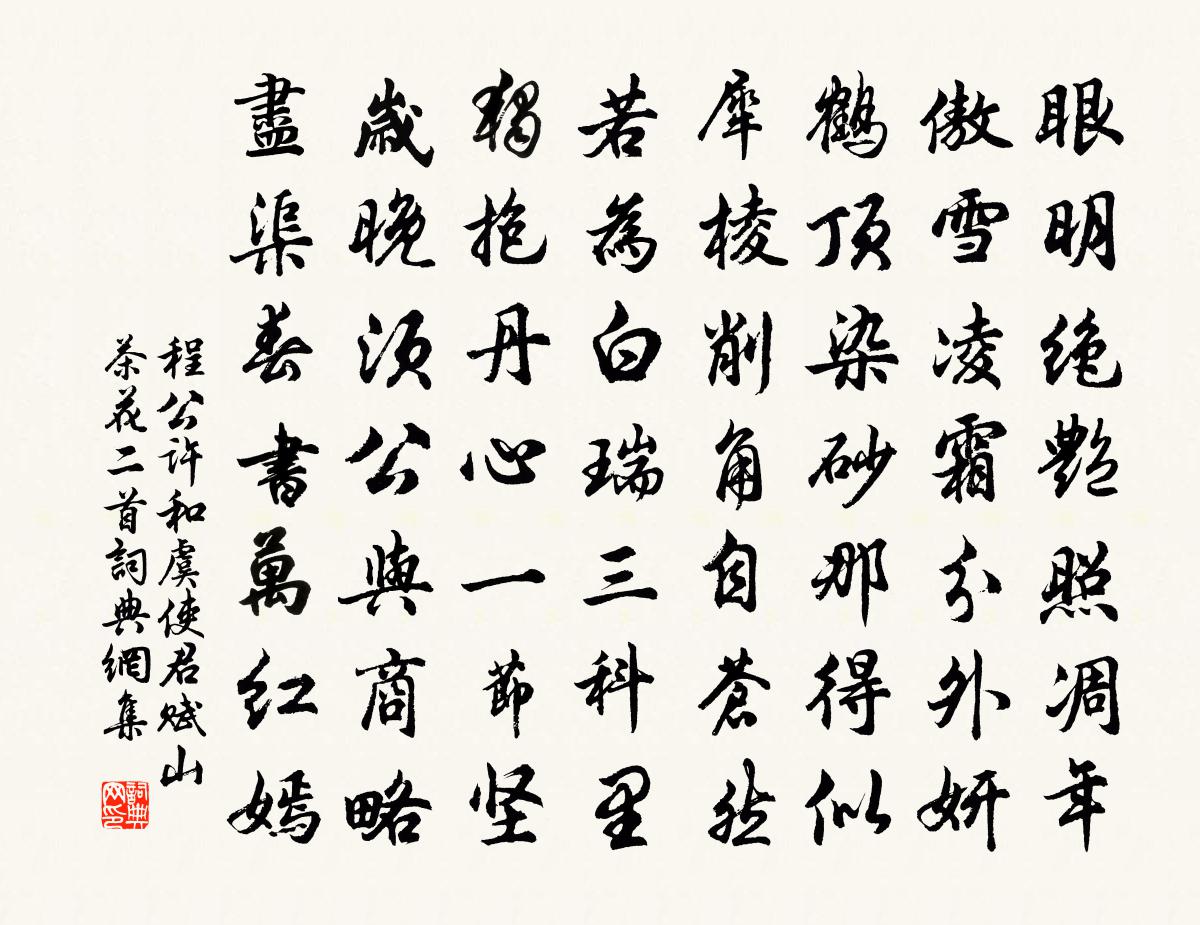 眼明绝艷照凋年
傲雪凌霜分外妍
鶴頂染砂那得似
犀棱削角自蒼然
若為白瑞三科里
獨抱丹心一節坚
歲晚須公與商略
盡渠春書萬红嫣
程公许和虞使君赋山
茶花二首詞典網集
詞典
网印